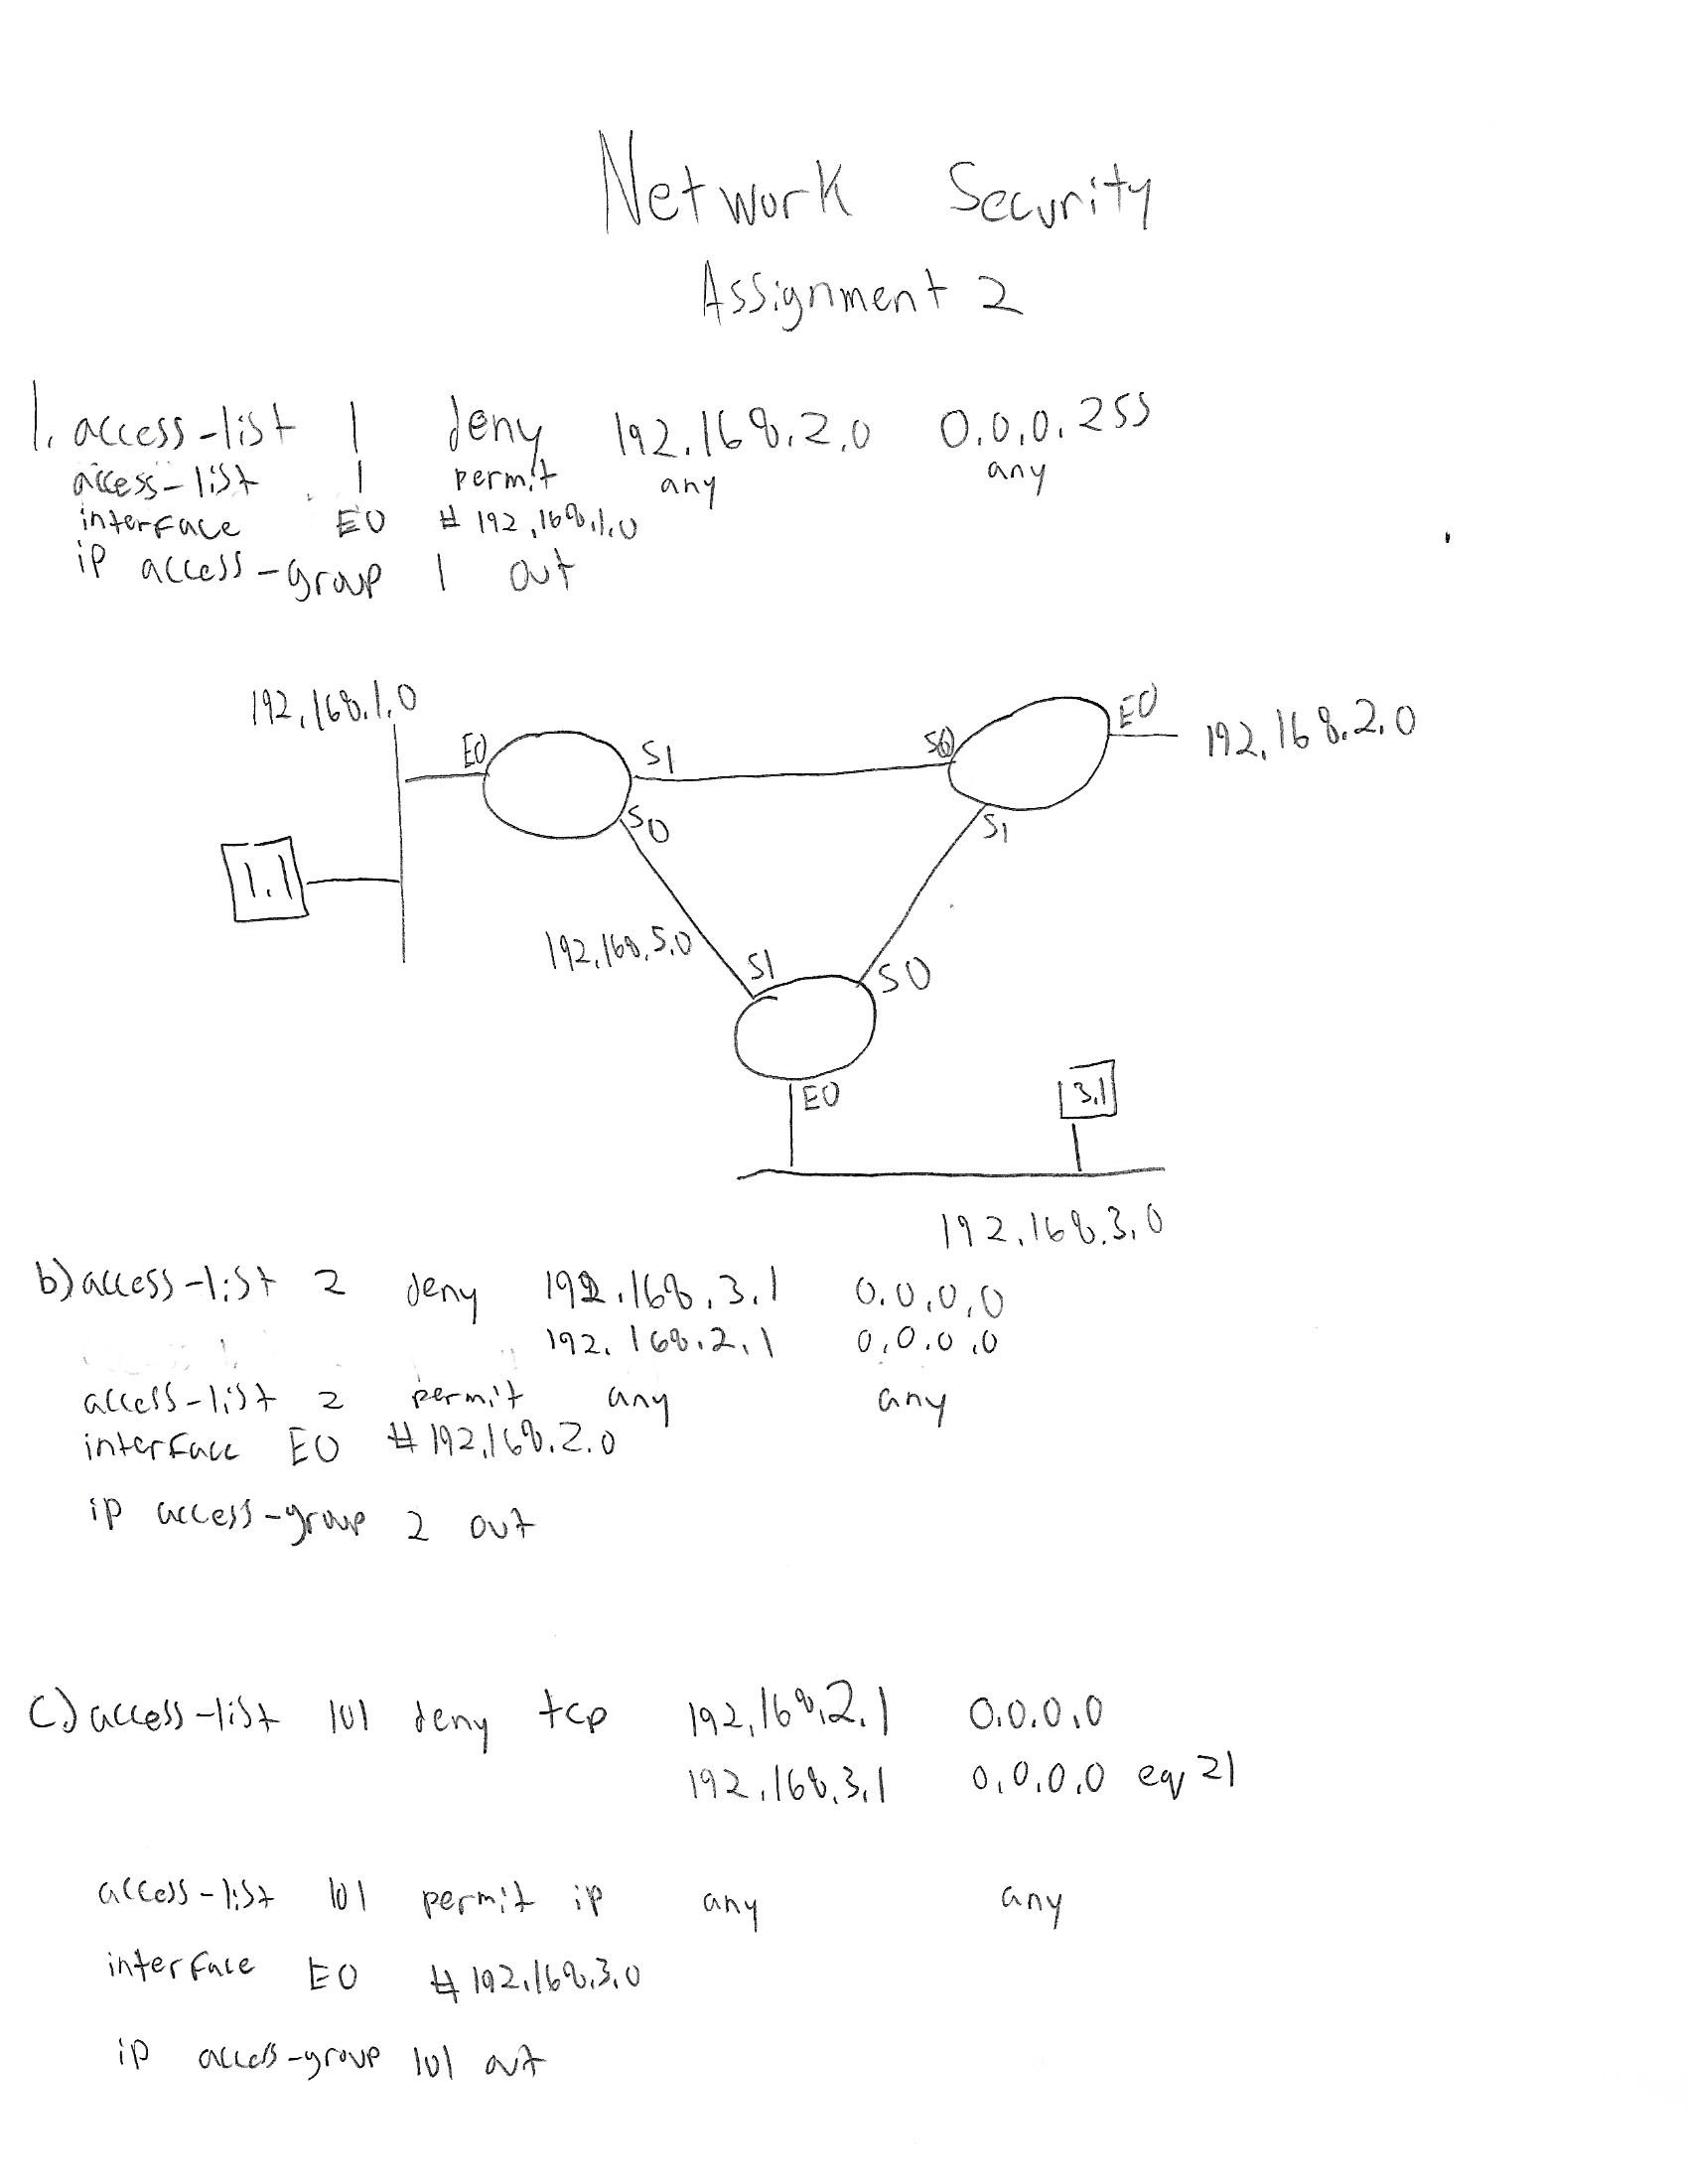 Network Security
Assignment 2
1. access-list 1 deny 192.168.2.0 0.0.0.255
access-list 1 permit any any
interface E0 # 192.168.1.0
ip access-group 1 out
192.168.1.0
E0
S1
S0
S0
E0
192.168.2.0
S1
1.1
192.168.5.0
S1
S0
E0
3.1
192.168.3.0
b) access-list 2 deny 192.168.3.1 0.0.0.0
192.168.2.1 0.0.0.0
access-list 2 permit any any
interface E0 # 192.168.2.0
ip access-group 2 out
c.) access-list 101 deny tcp 192.168.2.1 0.0.0.0
192.168.3.1 0.0.0.0 eq 21
access-list 101 permit ip any any
interface E0 # 192.168.3.0
ip access-group 101 out